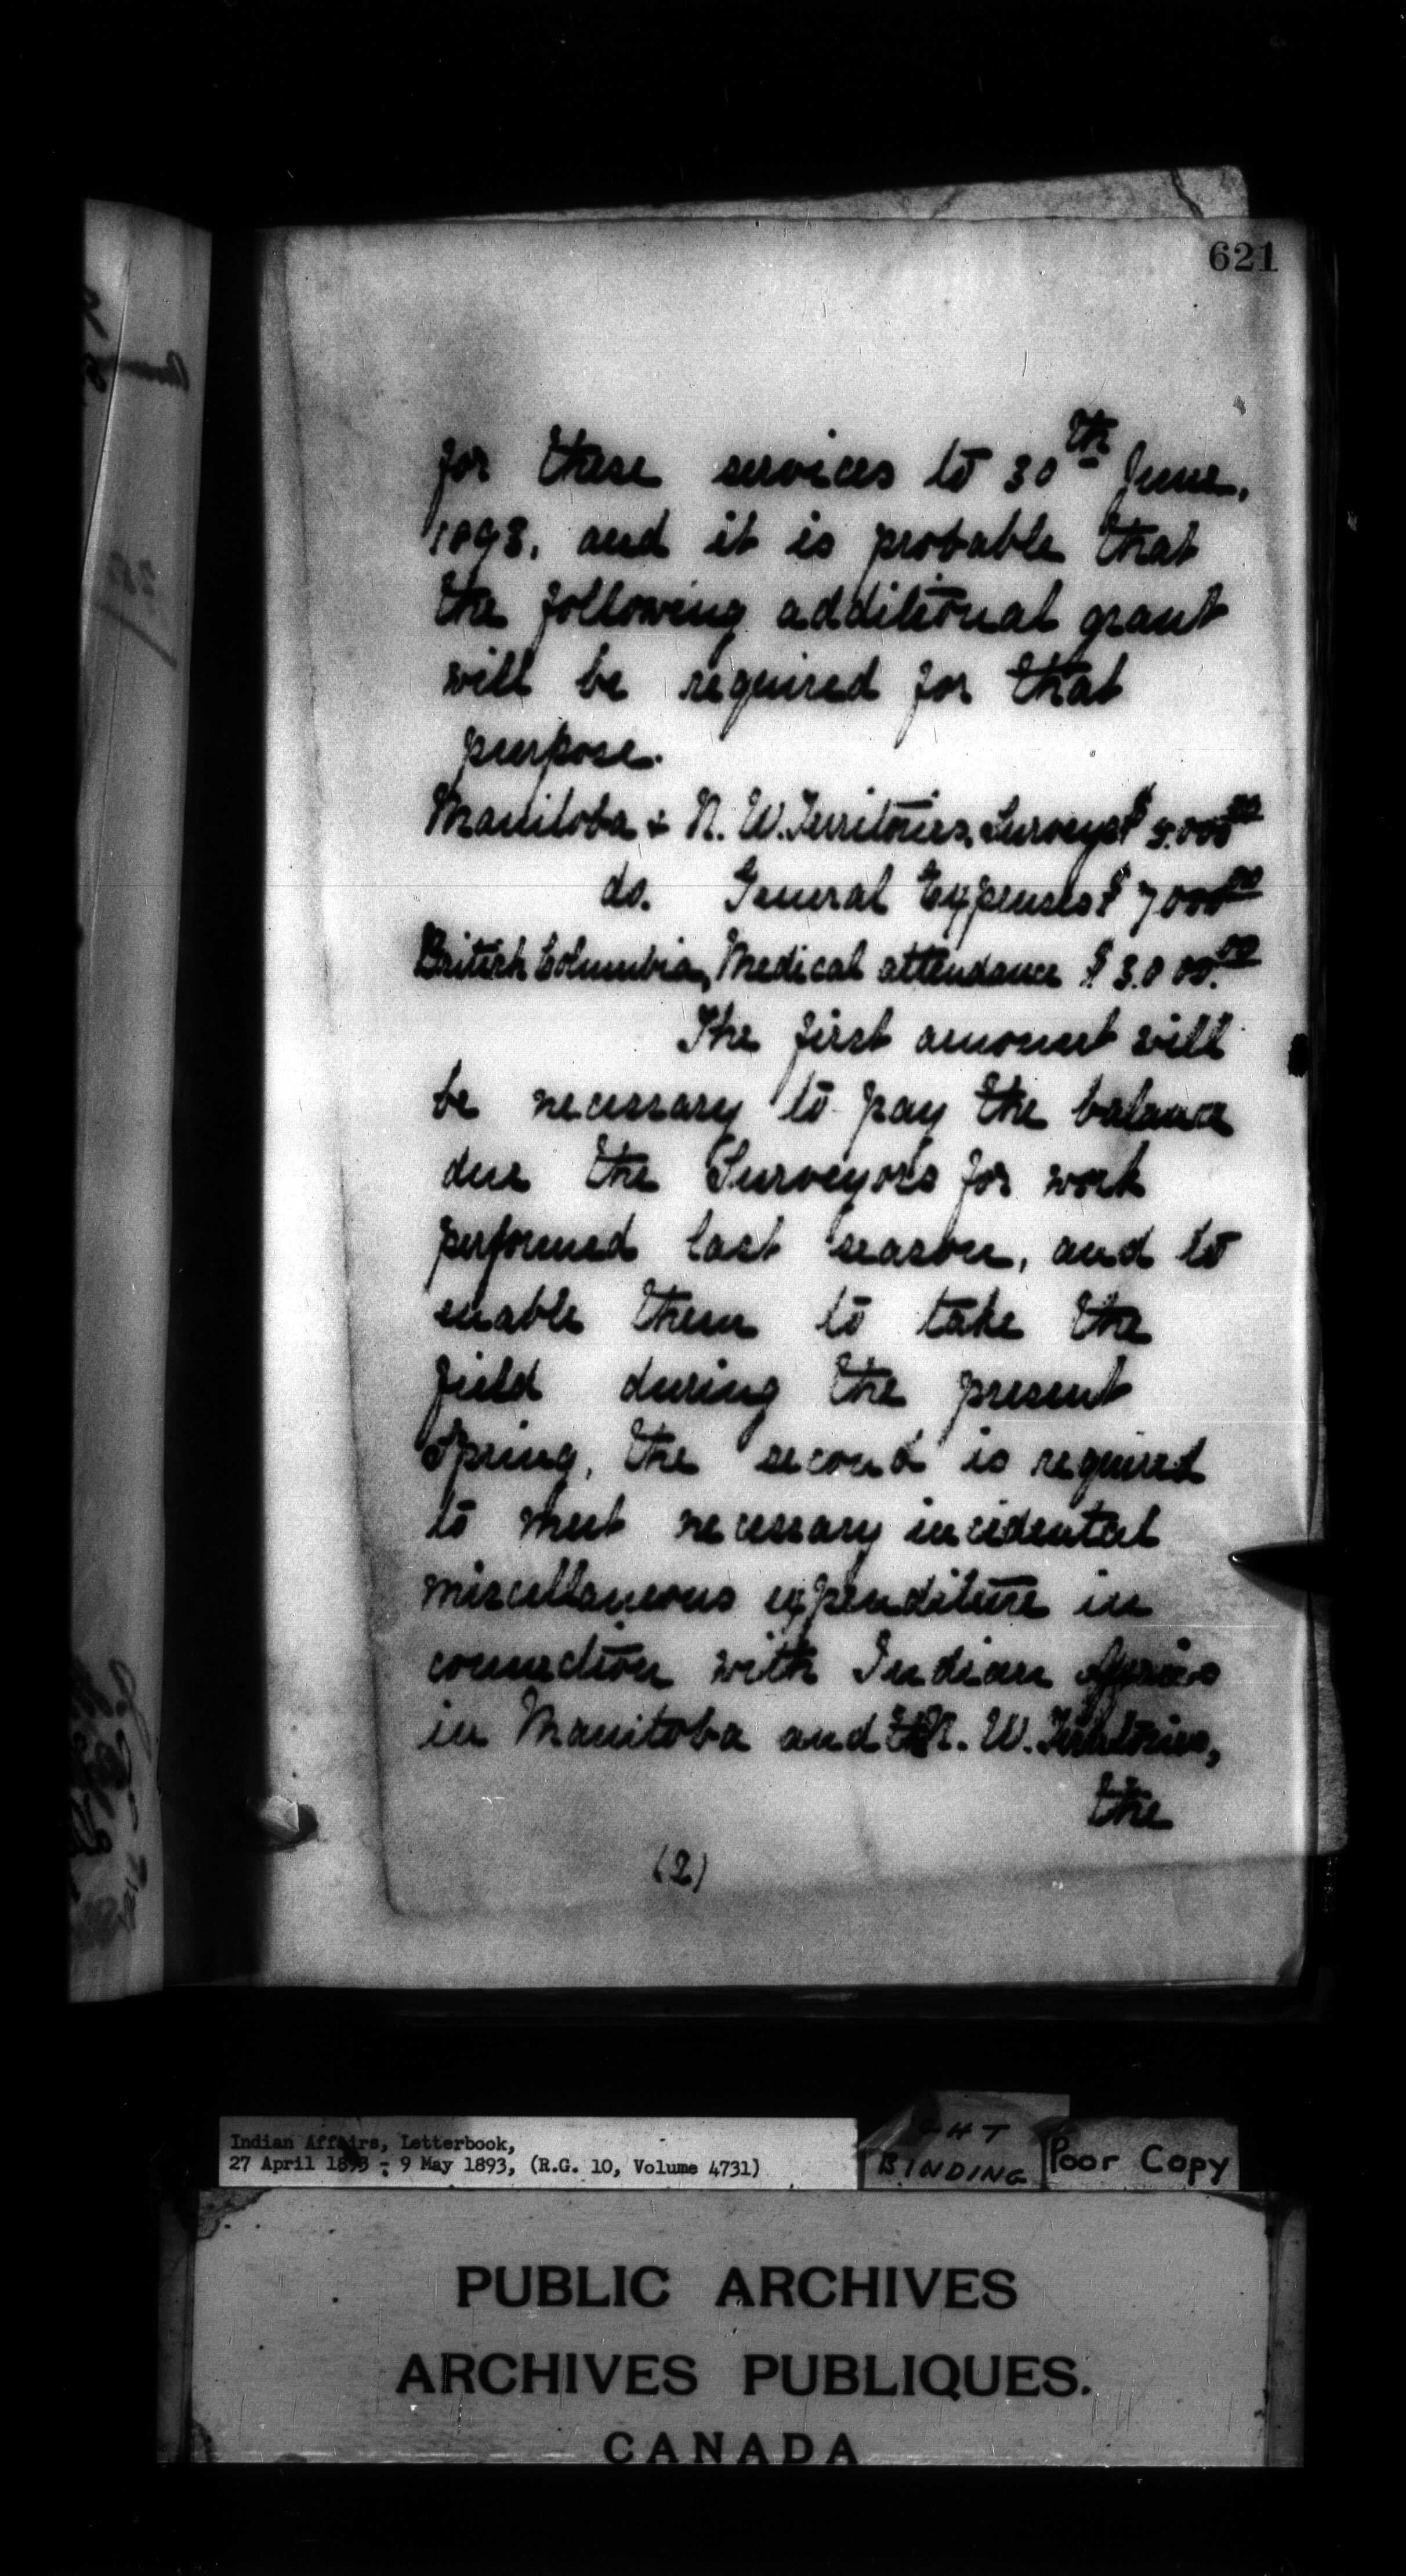 621
for these services to 30th June,
1893, and it is probable that
the following additional grant
will be required for that
purpose.
Manitoba & N. W. Territories, Surveys $ 5.000 00
do. General Expenses $ 7000 00
British Columbia, Medical attendance $ 3.000. 00
The first amount will
be necessary to pay the balance
due the Surveyors for work
performed last season, and to
enable them to take the
field during the present
Spring, the second is required
to meet necessary incidental
miscellaneous expenditure in
connection with Indian Affairs
in Manitoba and the N. W. Territories,
the
(2)
Indian Affairs, Letterbook,
27 April 1893 - 9 May 1893, (R.G. 10, Volume 4731)
BINDING
Poor Copy
PUBLIC ARCHIVES
ARCHIVES PUBLIQUES.
CANADA